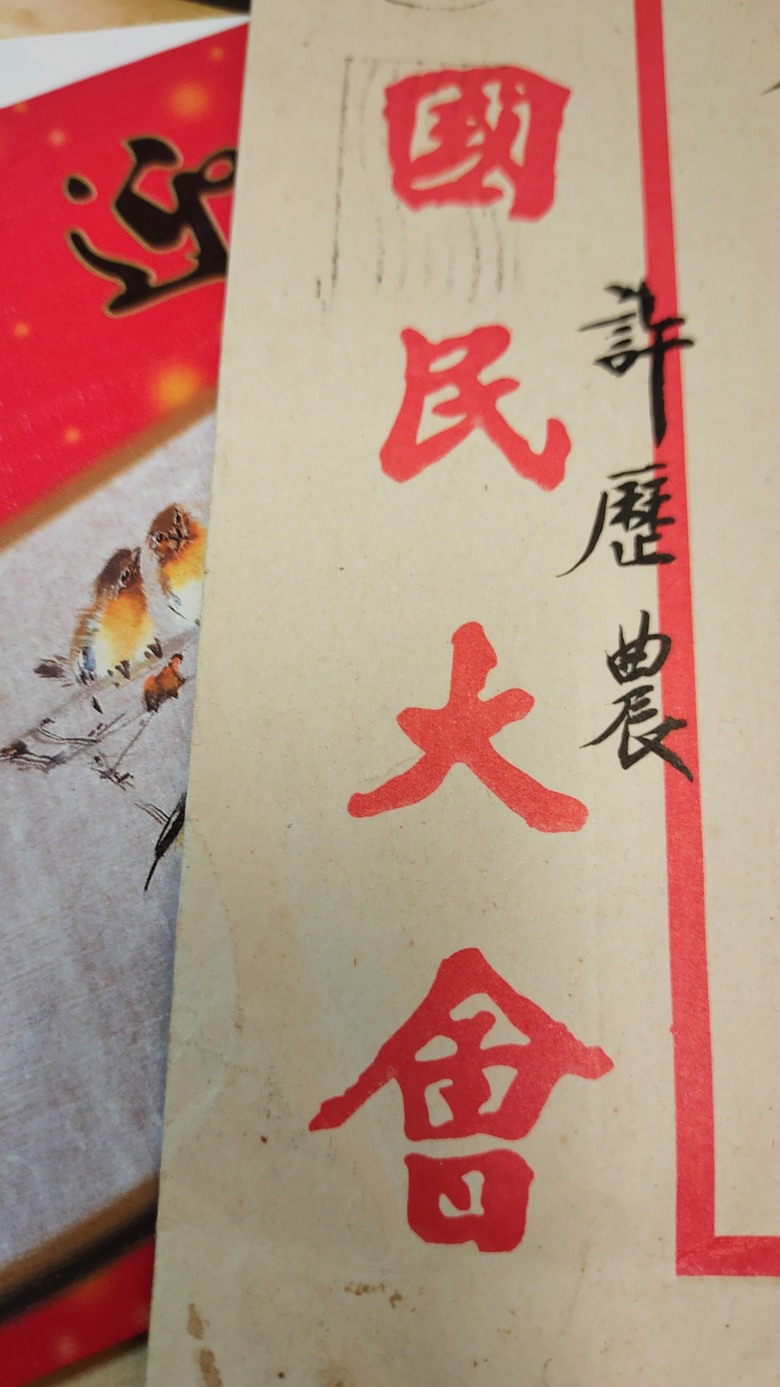 國民大會
許歷農
迎